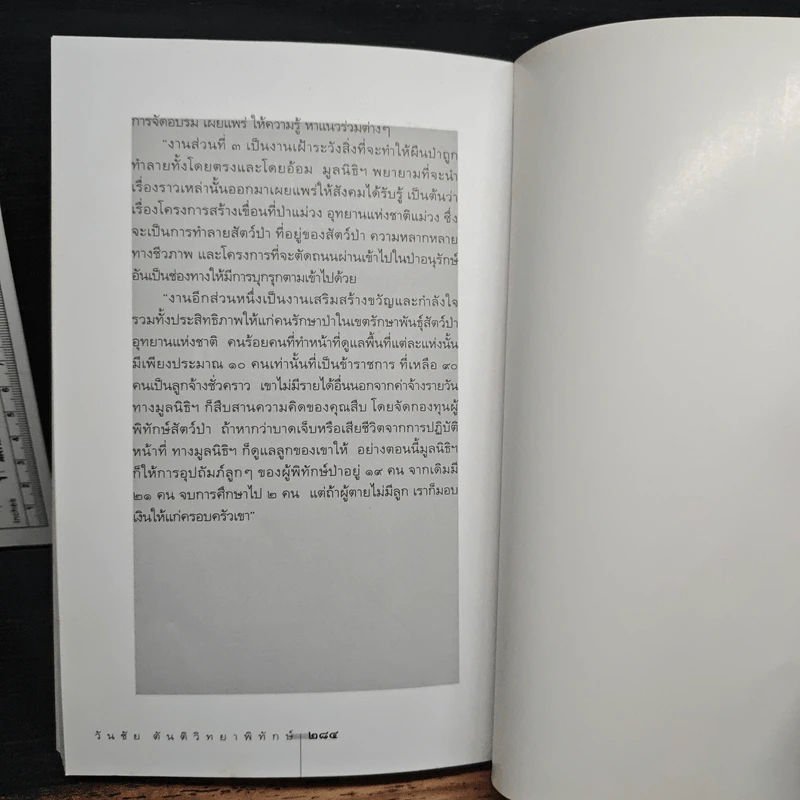 การจัดอบรม เผยแพร่ ให้ความรู้ หาแนวร่วมต่างๆ
"งานส่วนที่ ๓ เป็นงานเฝ้าระวังสิ่งที่จะทำให้ผืนป่าถูก
ทำลายทั้งโดยตรงและโดยอ้อม มูลนิธิฯ พยายามที่จะนำ
เรื่องราวเหล่านั้นออกมาเผยแพร่ให้สังคมได้รับรู้ เป็นต้นว่า
เรื่องโครงการสร้างเขื่อนที่ป่าแม่วง อุทยานแห่งชาติแม่วง ซึ่ง
จะเป็นการทำลายสัตว์ป่า ที่อยู่ของสัตว์ป่า ความหลากหลาย
ทางชีวภาพ และโครงการที่จะตัดถนนผ่านเข้าไปในป่าอนุรักษ์
อันเป็นช่องทางให้มีการบุกรุกตามเข้าไปด้วย
"งานอีกส่วนหนึ่งเป็นงานเสริมสร้างขวัญและกำลังใจ
รวมทั้งประสิทธิภาพให้แก่คนรักษาป่าในเขตรักษาพันธุ์สัตว์ป่า
อุทยานแห่งชาติ คนร้อยคนที่ทำหน้าที่ดูแลพื้นที่แต่ละแห่งนั้น
มีเพียงประมาณ ๑๐ คนเท่านั้นที่เป็นข้าราชการ ที่เหลือ ๙๐
คนเป็นลูกจ้างชั่วคราว เขาไม่มีรายได้อื่นนอกจากค่าจ้างรายวัน
ทางมูลนิธิฯ ก็สืบสานความคิดของคุณสืบ โดยจัดกองทุนผู้
พิทักษ์สัตว์ป่า ถ้าหากว่าบาดเจ็บหรือเสียชีวิตจากการปฏิบัติ
หน้าที่ ทางมูลนิธิฯ ก็ดูแลลูกของเขาให้ อย่างตอนนี้มูลนิธิฯ
ก็ให้การอุปถัมภ์ลูกๆ ของผู้พิทักษ์ป่าอยู่ ๑๙ คน จากเดิมมี
๒๑ คน จบการศึกษาไป ๒ คน แต่ถ้าผู้ตายไม่มีลูก เราก็มอบ
เงินให้แก่ครอบครัวเขา"
วันชัย ตันติวิทยาพิทักษ์ ๒๘๔
inches